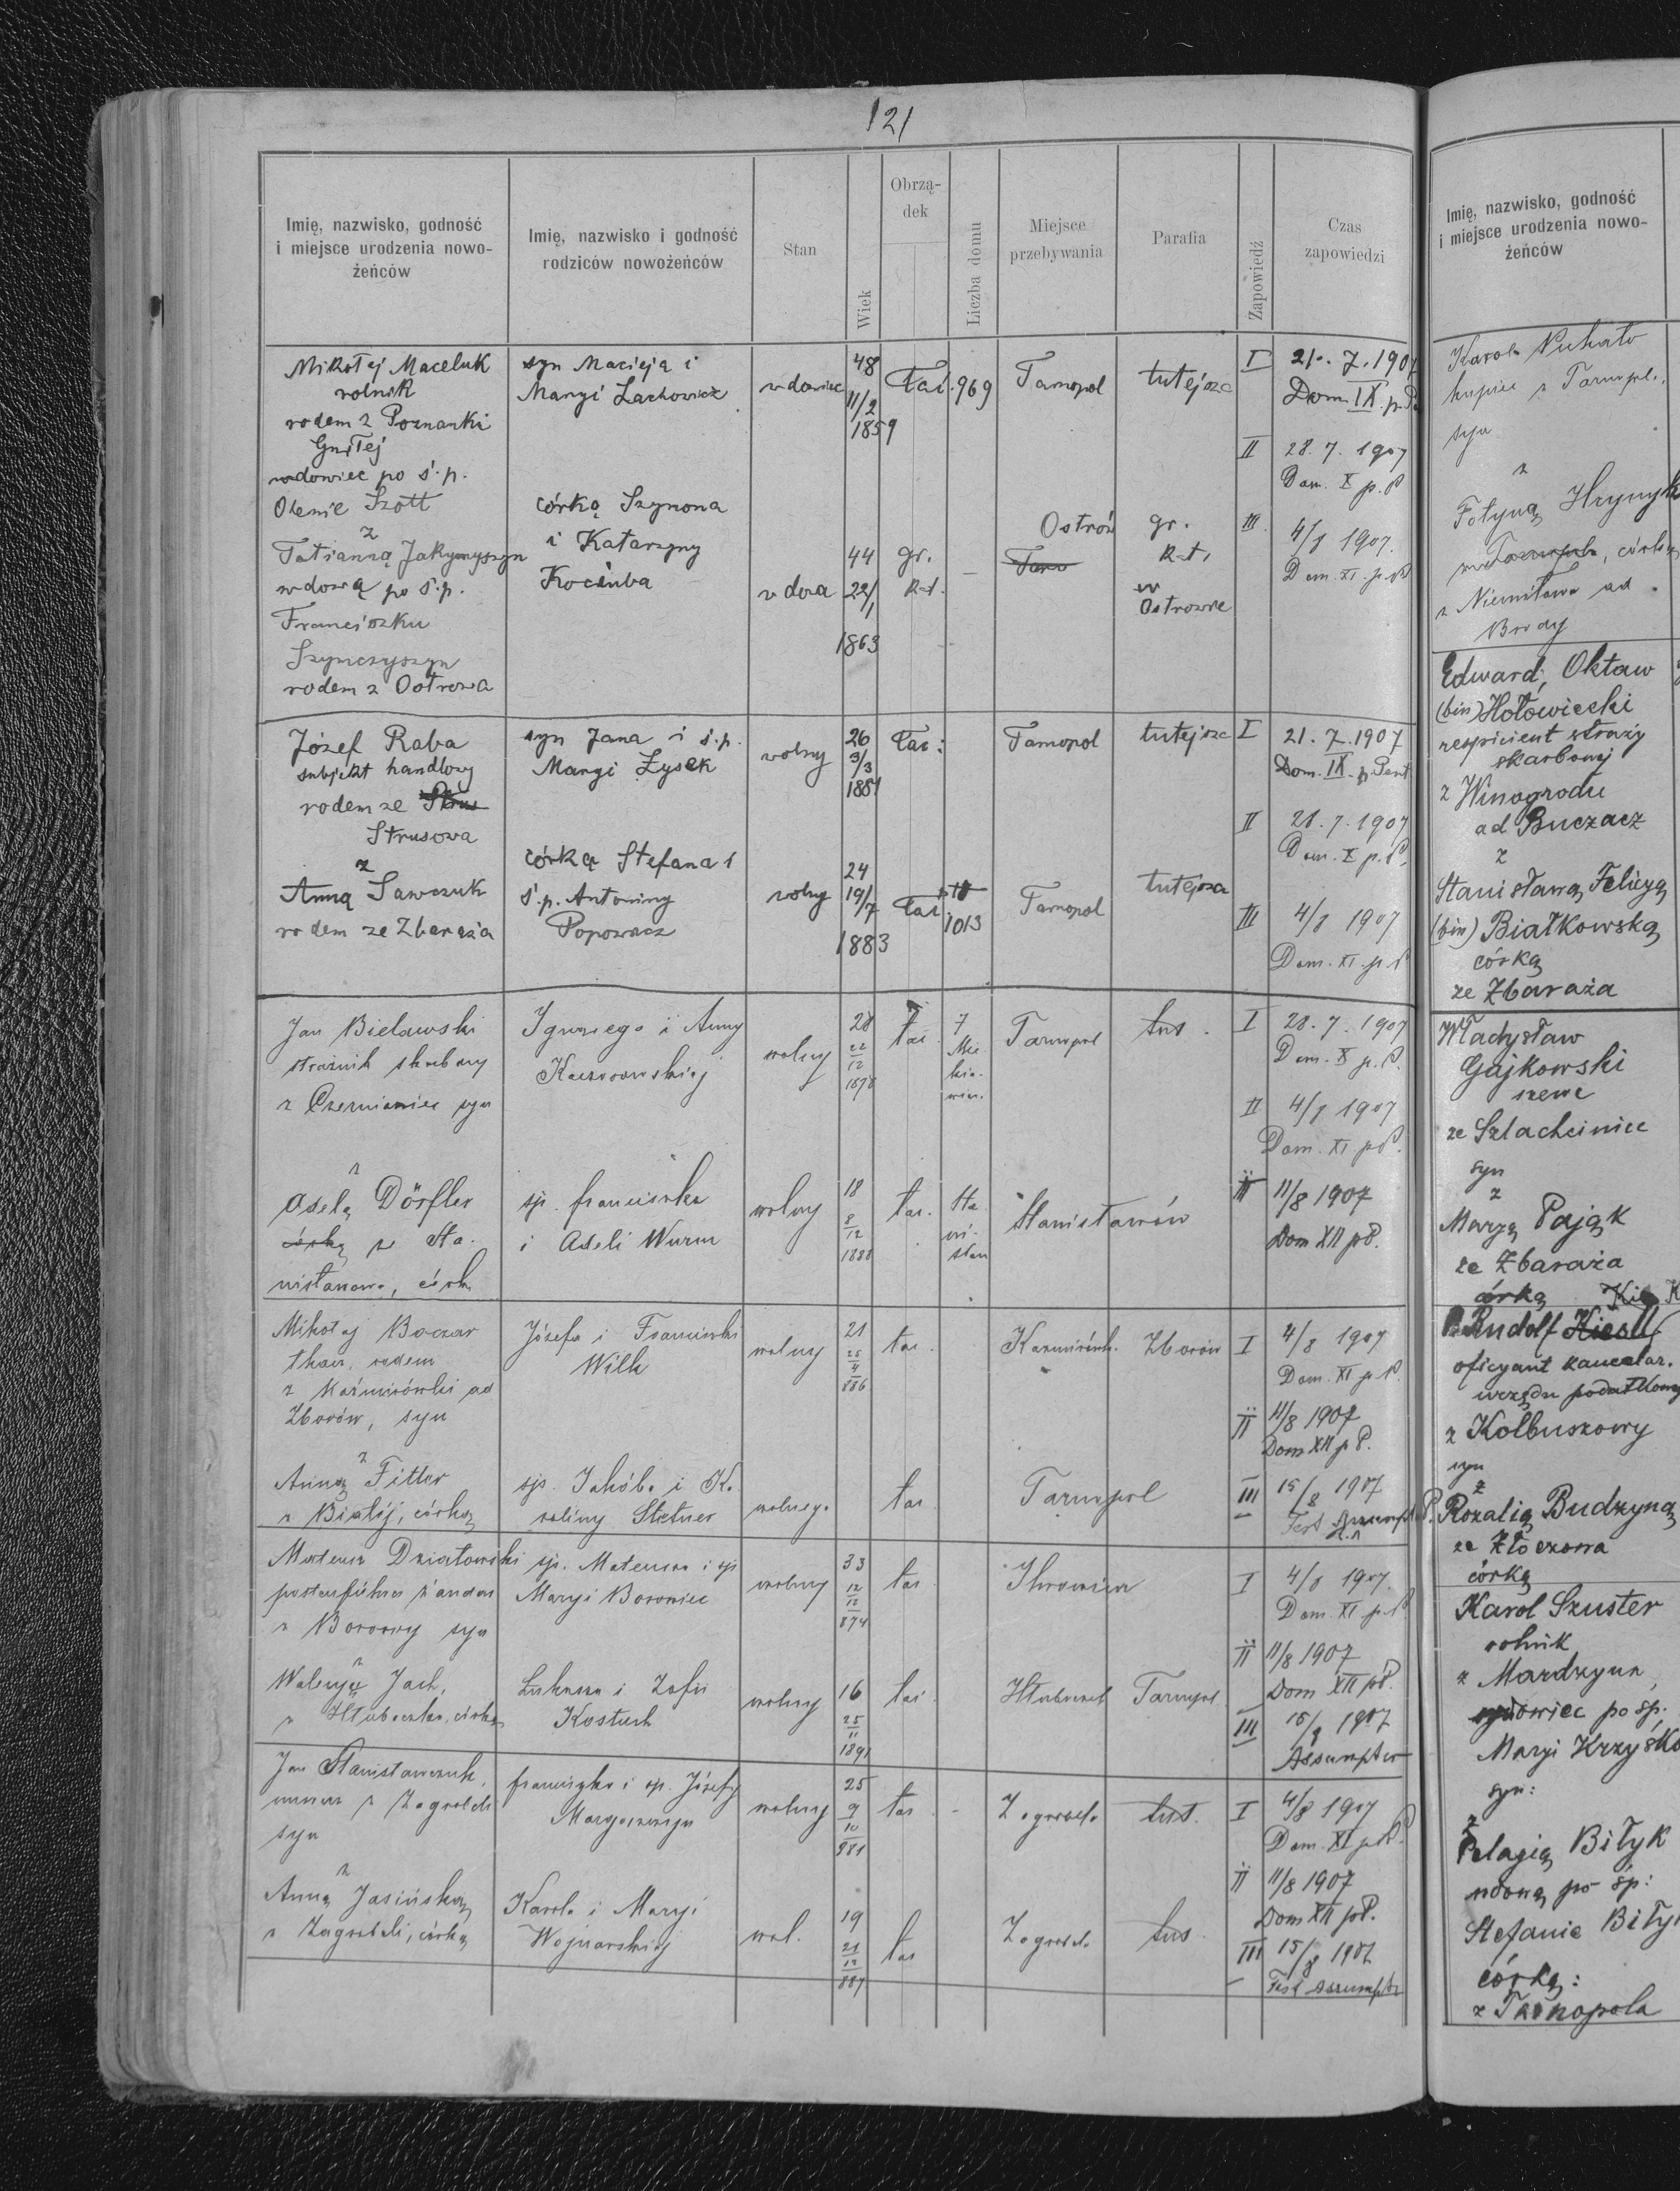 121
Imię, nazwisko, godność
i miejsce urodzenia nowo-
żeńców
Imię, nazwisko i godność
rodziców nowożeńców
Stan
Wiek
Obrzą-
dek
Liczba domu
Miejsce
przebywania
Parafia
Zapowiedź
Czas
zapowiedzi
Mikołej Maceluk
rolnik
rodem z Poznanki
Gniłej
wdowiec po ś.p.
Olenie Szott
z
Tatianną Jakymyszyn
wdową po ś.p.
Franciszku
Szymczyszyn
rodem z Ostrowa
syn Macieja i
Maryi Lachowicz
córką Szymona
i Katarzyny
Kociuba
wdowiec
wdowa
48
11/2
1859
44
22/1
1863
Łać.
gr.
k-t.
969
Tarnopol
Ostrów
tutejsza
gr.
k-t.
w
Ostrowie
I
21. 7. 1907
Dom. IX. p. P.
II
28. 7. 1907
Dom. X p. P
III
4/8 1907.
Dom. XI. p. P
Józef Raba
subjekt handlowy
rodem ze
Strusowa
z
Anną Sawczuk
rodem ze Zbaraża
syn Jana i ś.p.
Maryi Łysek
córką Stefana i
ś.p. Antoniny
Popowicz
wolny
wolny
26
3/3
1881
24
19/7
1883
Łać.
Łać.
1013
Tarnopol
Tarnopol
tutejsza
tutejsza
I
21. 7. 1907
Dom. IX. p. Pent
II
28. 7. 1907
Dom. X p. P.
III
4/8 1907
Dom. XI. p. P
Jan Bielawski
strażnik skarbowy
z Czerniowiec syn
z
Adelą Dörfler
córką ze Sta-
nisławowa, córk
Ignacego i Anny
śp. Franciszka
i Adeli Wurm
wolny
wolny
28
22
12
1878
18
8
12
1888
łać.
łać.
7
Mic
kie-
wicz.
Tarnopol
Stanisławów
tut.
I
28. 7. 1907
Dom. X p. P.
II
4/8 1907
Dom. XI p P.
III
11/8 1907
Dom XII p P.
Mikołaj Boczar
tkacz, rodem
z Kaźmirówki ad
Zborów, syn
z
Anną Fitter
z Białej, córką
Józefa i Franciszki
Wilk
śp. Jakóba i Ka
roliny Stetner
wolny
wolnego
21
25
4
886
łać.
łać.
Tarnopol
Zborów
I
4/8 1907
Dom. XI p P.
II
11/8 1907
Dom XII p P.
III
15/8 1907
Fest Assumpt
Mateusz Działowski
z Borowy syn
z
Waleryą Jach,
z Hłuboczka, córką
śp. Mateusza i śp
Maryi Borowiec
Łukasza i Zofii
Kostuch
wolny
wolny
33
12
12
874
16
25
11
1891
łać
łać.
Tarnopol
I
4/8 1907.
Dom. XI p. P
II
11/8 1907
Dom XII p P.
III
15/8 1907
Assumptio
Jan Stanisławczuk,
murarz z Zagrobeli
syn
z
Anną Jasińską
z Zagrobeli, córką
Franciszka i śp. Józefy
Karola i Maryi
Wojnarskiej
wolny
wol.
25
9
10
881
19
21
12
887
łać
łać
Zagrobela
Zagrobela
tut.
tut.
I
4/8 1907
Dom. XI p P.
II
11/8 1907
Dom XII p P.
III
15/8 1907
Fest Assumptio
Imię, nazwisko, godność
i miejsce urodzenia nowo-
żeńców
Karol
kupiec z Tarnopola,
syn
z
Fotyną Hrynyk
córką
ad
Brody
Edward, Oktaw
(bin) Hołowiecki
respicient straży
skarbowej
z Winogrodu
ad Buczacz
z
Stanisławą Felicyą
(bin) Białkowską
córką
ze Zbaraża
Władysław
Gajkowski
szewc
ze Szlachciniec
syn
z
Maryą Pająk
ze Zbaraża
córką
Rudolf
oficyant kancelar.
urzędu podatkowy
z Kolbuszowy
syn
z
Rozalią Budzyną
ze Złoczowa
córką
Karol Szuster
rolnik
z Mardzyna,
wdowiec po śp.
Maryi Krzyśko
syn:
z
Pelagią Biłyk
wdową po śp:
Stefanie Biły
córką:
z Tarnopola